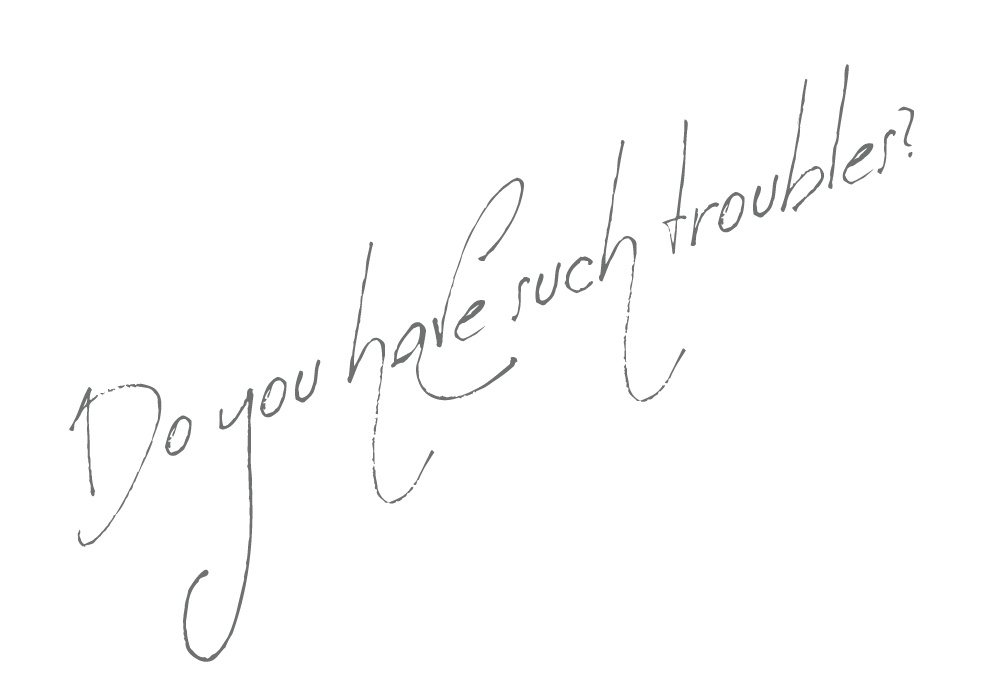 Do you have such troubles?